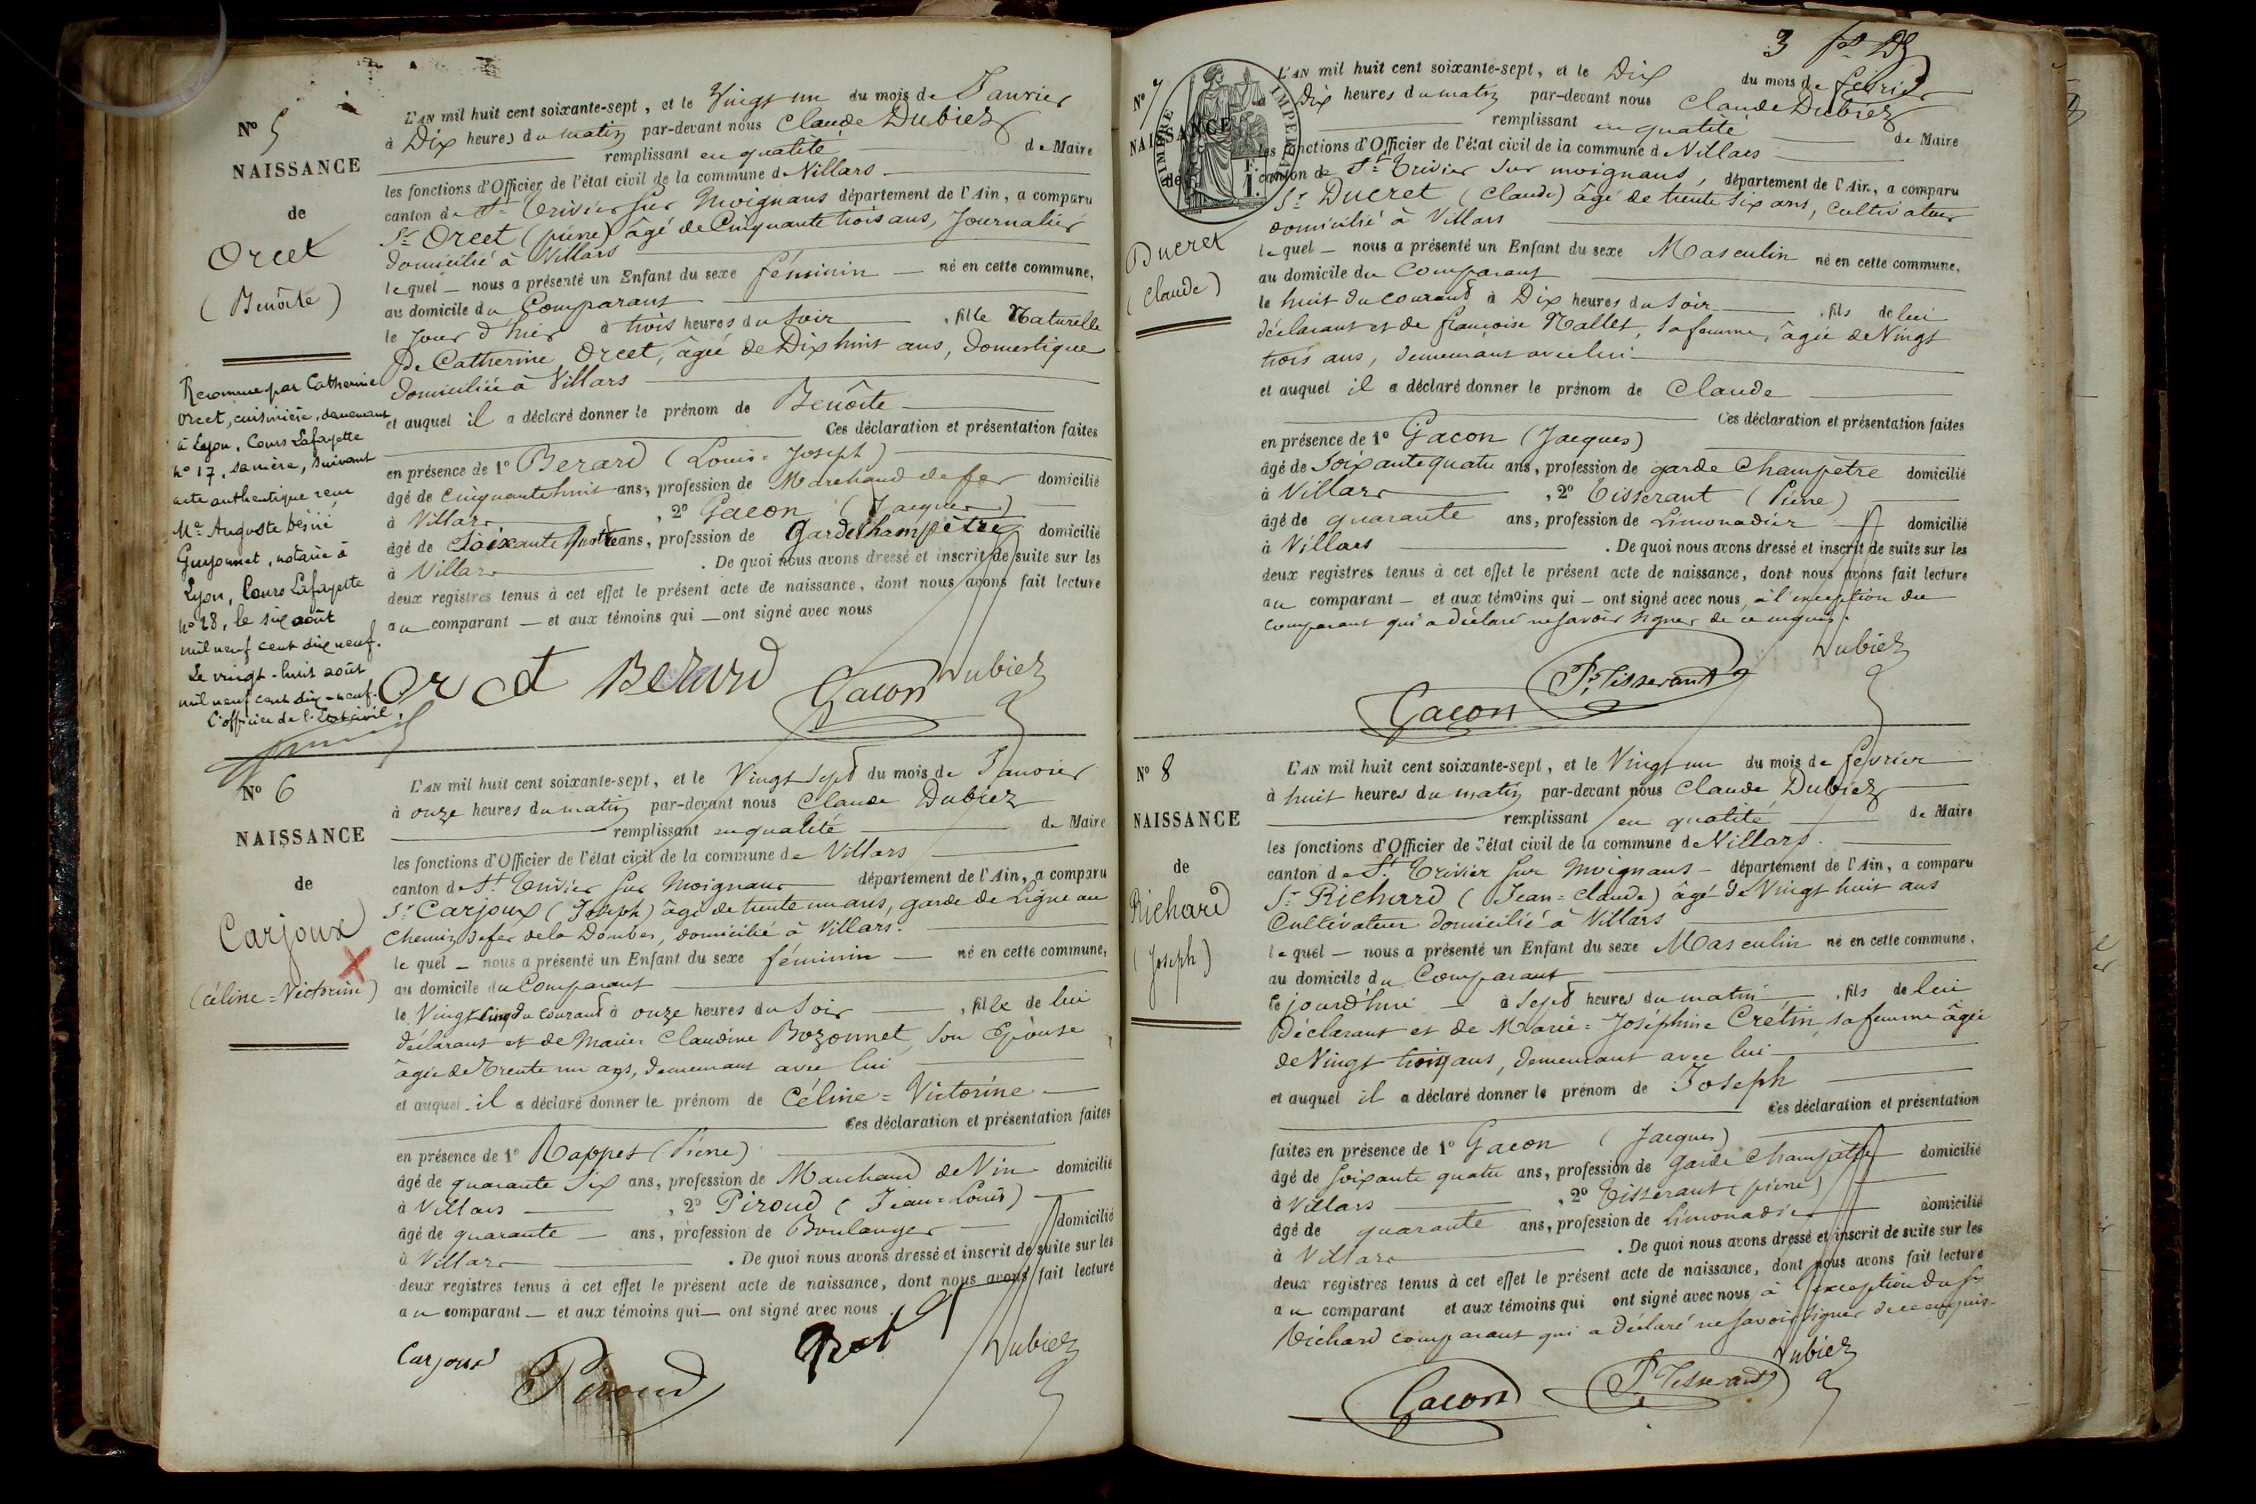 N° 5
NAISSANCE
de
Orcet
(Benôite)
Reconnue par Catherine
Orcet, cuisinière, demeurant
à Lyon, Cours Lafayette
n° 17, sa mère, suivant
acte authentique reçu
Me Auguste Désiré
Guyonnet, notaire à
Lyon, Cours Lafayette
n° 28, le six août
mil neuf cent dix neuf.
Le vingt-huit août
mil neuf cent dix-neuf.
L'officier de l'Etat civil
L'AN mil huit cent soixante-sept, et le Vingt un du mois de Janvier
à Dix heures du matin par-devant nous Claude Dubiez
remplissant en qualité de Maire
les fonctions d'Officier de l'état civil de la commune de Villars
canton de St Trivier sur Moignans département de l'Ain, a comparu
Sr Orcet (pierre) âgé de Cinquante trois ans, Journalier
domicilié à Villars
lequel nous a présenté un Enfant du sexe féminin né en cette commune,
au domicile du Comparant
le Jour d'hier à trois heures du Soir, fille Naturelle
De Catherine Orcet, âgée de Dix huit ans, Domestique
Domiciliée à Villars
et auquel il a déclaré donner le prénom de Benôite
Ces déclaration et présentation faites
en présence de 1° Berard (Louis-Joseph)
âgé de cinquante huit ans, profession de Marchand de fer domicilié
à Villars, 2° Gacon (Jacques)
âgé de Soixante quatre ans, profession de Garde champêtre domicilié
à Villars. De quoi nous avons dressé et inscrit de suite sur les
deux registres tenus à cet effet le présent acte de naissance, dont nous avons fait lecture
au comparant et aux témoins qui ont signé avec nous
Orcet Berard Gacon Dubiez
N° 6
NAISSANCE
de
Carjoux
(Céline=Victorine)
L'AN mil huit cent soixante-sept, et le Vingt Sept du mois de Janvier
à onze heures du matin par-devant nous Claude Dubiez
remplissant en qualité de Maire
les fonctions d'Officier de l'état civil de la commune de Villars
canton de St Trivier sur Moignans département de l'Ain, a comparu
Sr Carjoux (Joseph) âgé de trente un ans, garde de Ligne au
Chemin de fer de la Dombes, domicilié à Villars.
lequel nous a présenté un Enfant du sexe féminin né en cette commune,
au domicile du Comparant
le Vingt Cinq du Courant à onze heures du Soir, fille de lui
déclarant et de Marie Claudine Bozonnet, Son Epouse
âgée de Trente un ans, demeurant avec lui
et auquel il a déclaré donner le prénom de Céline=Victorine
Ces déclaration et présentation faites
en présence de 1° Rappet (Pierre)
âgé de quarante Six ans, profession de Marchand de Vin domicilié
à Villars, 2° Piroud (Jean=Louis)
âgé de quarante ans, profession de Boulanger domicilié
à Villars. De quoi nous avons dressé et inscrit de suite sur les
deux registres tenus à cet effet le présent acte de naissance, dont nous avons fait lecture
au comparant et aux témoins qui ont signé avec nous
Carjoux Piroud Dubiez
3
N° 7
NAISSANCE
de
TIMBRE IMPERIAL
Ducret
(Claude)
L'AN mil huit cent soixante-sept, et le Dix du mois de février
à Dix heures du matin par-devant nous Claude Dubiez
remplissant en qualité de Maire
les fonctions d'Officier de l'état civil de la commune de Villars
canton de St Trivier sur moignans, département de l'Ain, a comparu
Sr Ducret (Claude) âgé de trente six ans, Cultivateur
domicilié à Villars
lequel nous a présenté un Enfant du sexe Masculin né en cette commune,
au domicile du Comparant
le huit du courant à Dix heures du Soir, fils de lui
déclarant et de françoise Mallet, sa femme, âgée de Vingt
trois ans, demeurant avec lui
et auquel il a déclaré donner le prénom de Claude
Ces déclaration et présentation faites
en présence de 1° Gacon (Jacques)
âgé de Soixante quatre ans, profession de garde Champêtre domicilié
à Villars, 2° Tisserant (Pierre)
âgé de quarante ans, profession de Limonadier domicilié
à Villars. De quoi nous avons dressé et inscrit de suite sur les
deux registres tenus à cet effet le présent acte de naissance, dont nous avons fait lecture
au comparant et aux témoins qui ont signé avec nous, à l'exception du
comparant qui a déclaré ne savoir signer de ce requis.
Dubiez
P. Tisserant
Gacon
N° 8
NAISSANCE
de
Richard
(Joseph)
L'AN mil huit cent soixante-sept, et le Vingt un du mois de février
à huit heures du matin par-devant nous Claude Dubiez
remplissant en qualité de Maire
les fonctions d'Officier de l'état civil de la commune de Villars
canton de St Trivier sur Moignans département de l'Ain, a comparu
Sr Richard (Jean=Claude) âgé de Vingt huit ans
Cultivateur domicilié à Villars
lequel nous a présenté un Enfant du sexe Masculin né en cette commune,
au domicile du Comparant
le jourd'hui à Sept heures du matin, fils de lui
Déclarant et de Marie=Joséphine Crétin, sa femme âgée
de Vingt trois ans, demeurant avec lui
et auquel il a déclaré donner le prénom de Joseph
Ces déclaration et présentation
faites en présence de 1° Gacon (Jacques)
âgé de Soixante quatre ans, profession de Garde Champêtre domicilié
à Villars, 2° Tisserant (pierre)
âgé de quarante ans, profession de Limonadier domicilié
à Villars. De quoi nous avons dressé et inscrit de suite sur les
deux registres tenus à cet effet le présent acte de naissance, dont nous avons fait lecture
au comparant et aux témoins qui ont signé avec nous à l'exception du Sr
Richard comparant qui a déclaré ne savoir signer de ce requis.
Dubiez
Gacon P. Tisserant